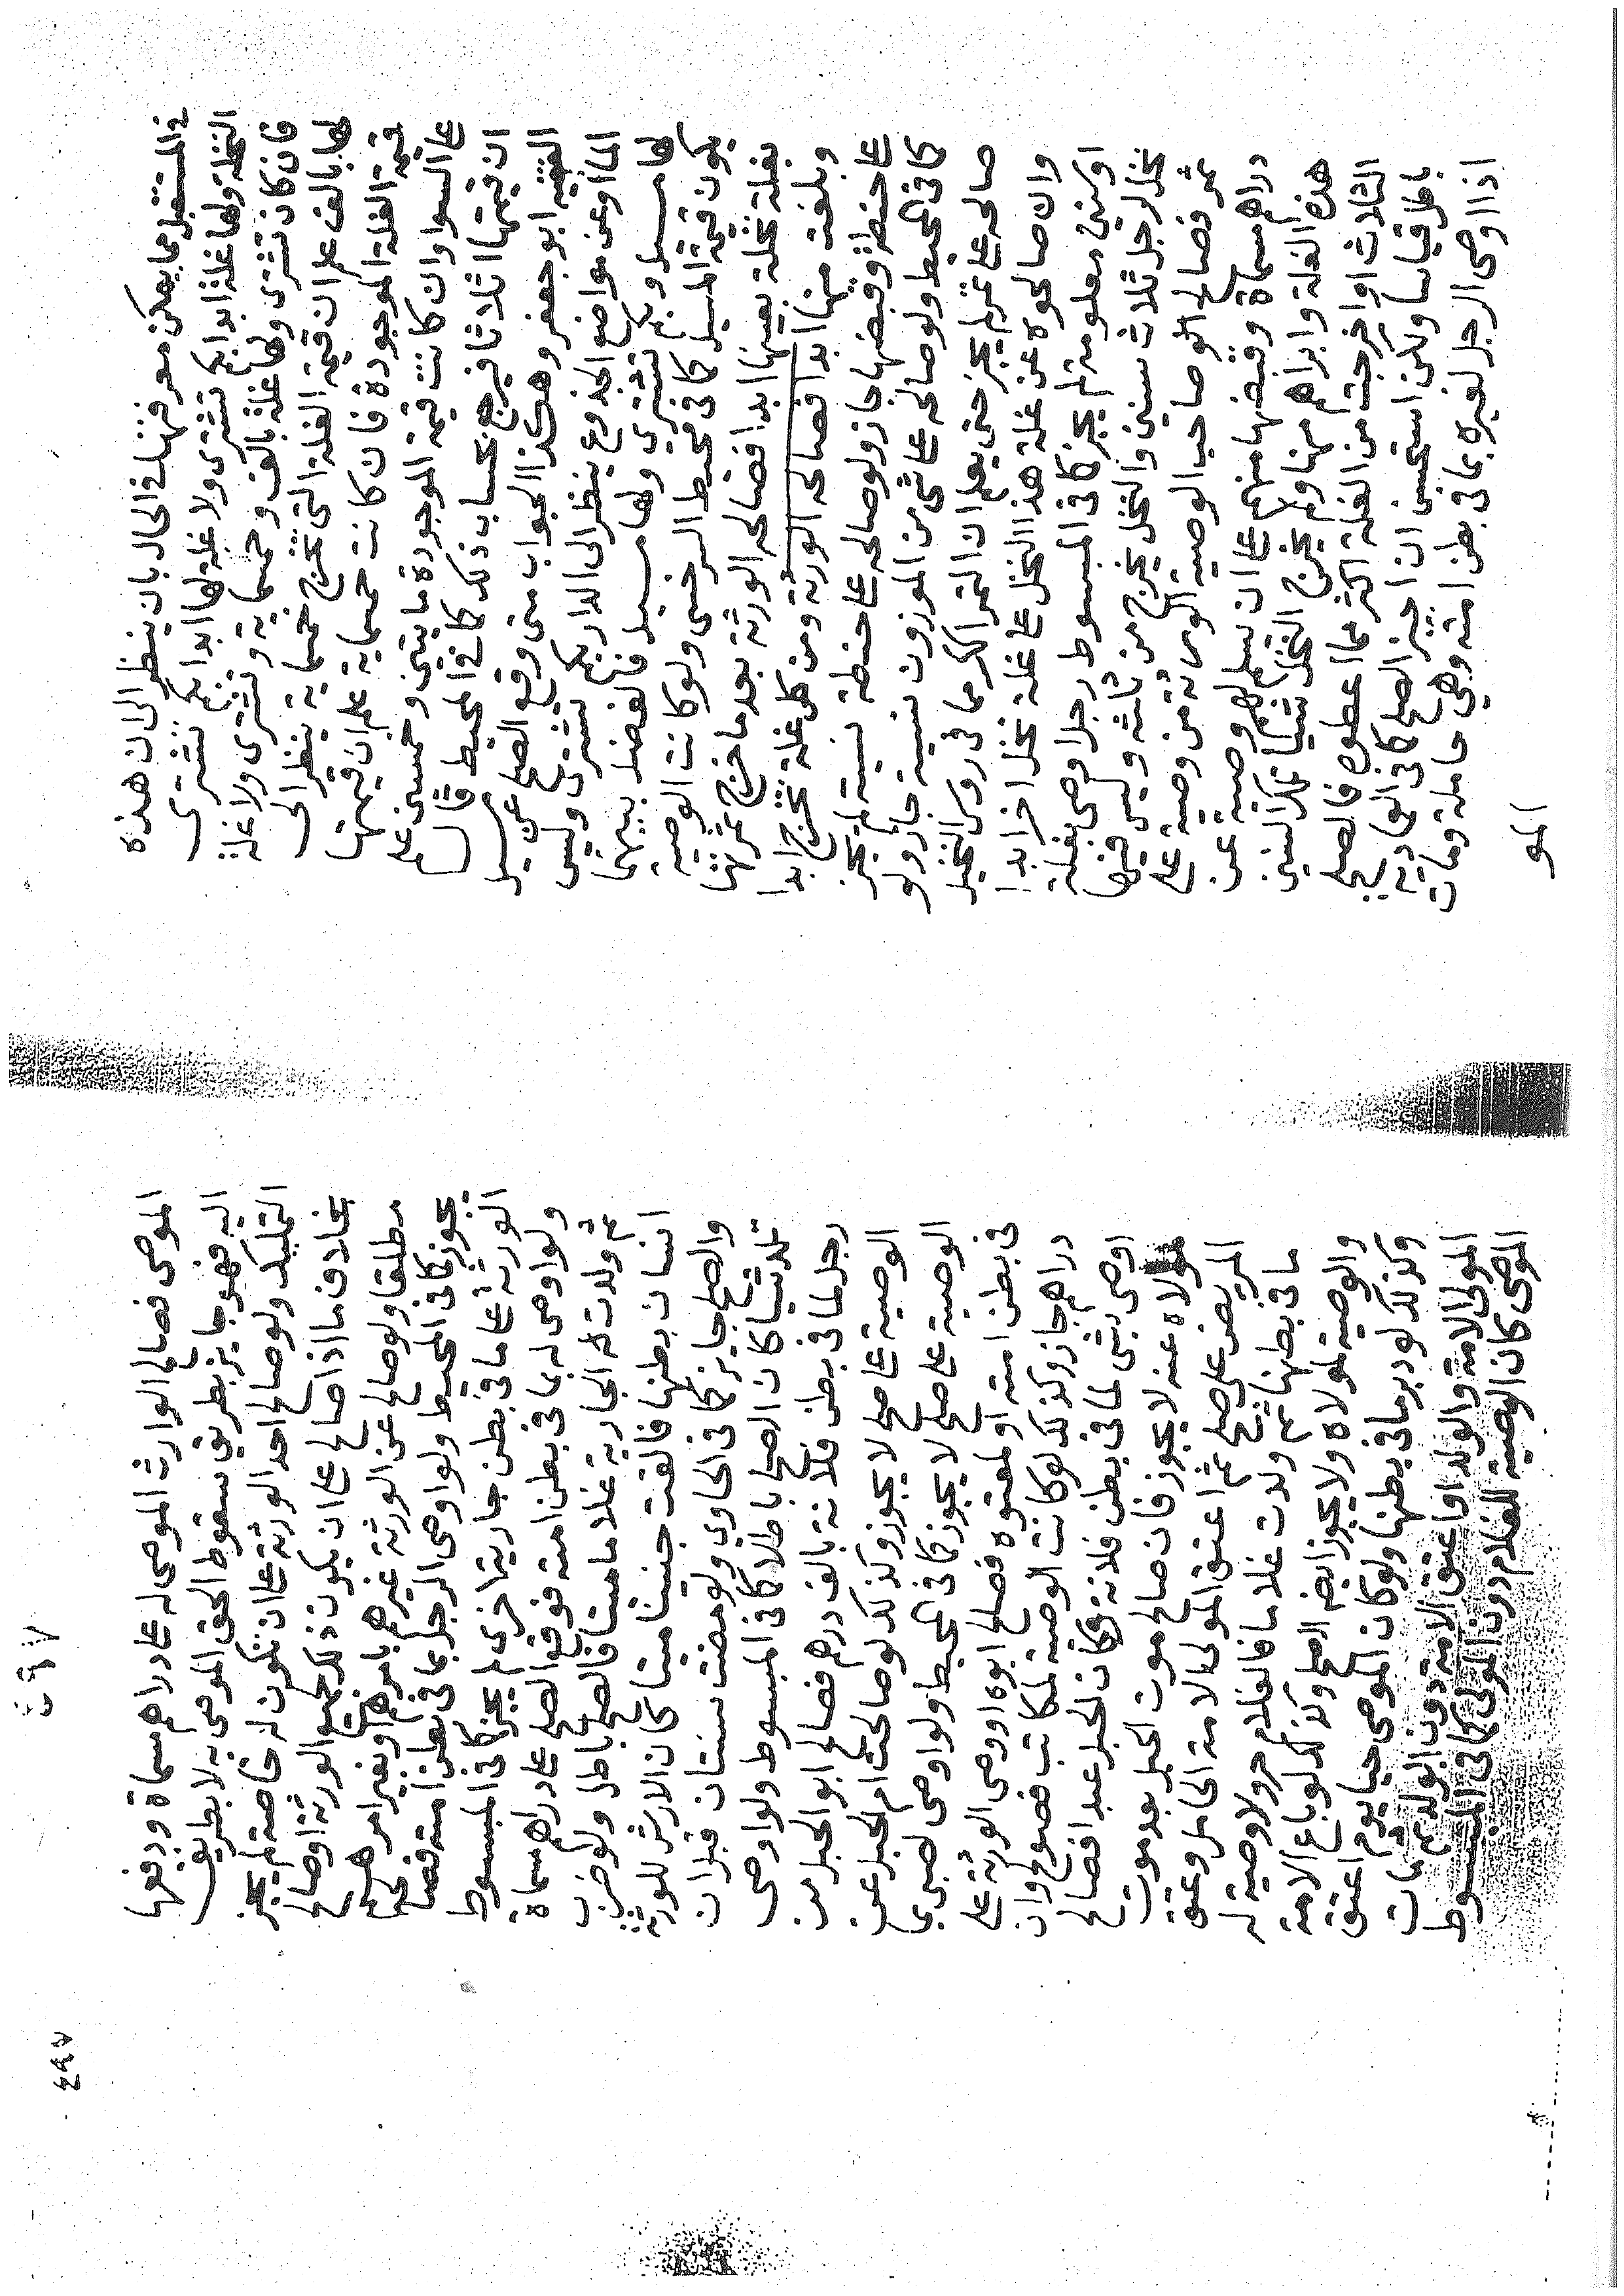 في المستقبل مما يمكن معرفتها في الحال بان ينظر الى ان هذه
النخلة ولها غلة ابدا بكم تشترى ولا غلة لها ابدا بكم تشترى
فان كان تشترى ولها غلة بالف وخمسماية وتشترى ولا غلة
لها بالف علم ان قيمة الغلة التي تخرج خمسماية ينظر الى
قيمة الغلة الموجودة فان كانت خمسماية علم ان قيمتها
على السوا وان كانت قيمة الموجودة مايتين وخمسين علم
ان قيمتها اثلاثا فيرجع بحساب ذلك كذا في المحيط قال
الفقيه ابو جعفر وهكذا الجواب متى وقع الصلح عن مسيل
الماء وعن مواضع الجذوع ينظر الى الدار بكم تشترى وليس
لها مسيل وبكم تشترى ولها مسيل فالفضل بينهما
يكون قيمة المسيل كذا في محيط السرخسي ولو كانت الوصية
بغلة نخلة بعينها ابدا فصالحه الورثة بعد ما خرج ثمرتها
وبلغت منها ابدا فصالحه الورثة ومن كل غلة تخرج ابدا
على حنطة وقبضها جاز ولو صالحه على حنطة نسية لم يجز
كذا في المحيط ولو صالحه على شي من الموزون نسية جاز ولو
صالحه على تمر لم يجز حتى يعلم ان التمر اكثر مما في روس النخيل
وان صالحوه عن غلة هذا النخل على غلة نخل اخر ابدا
او سنين معلومة لم يجز كذا في المبسوط رجل اوصى بغلة
نخل لرجل ثلاث سنين والنخل يخرج من ثلثه وليس فيها
ثمر فصالح الوصاحب الوصية الورثة من وصيته على
دراهم مسماة وقبضها منهم على ان يسلم لهم وصيته عن
هذه الغلة وابراهم منها ولم يخرج النخل شيا تلك السنين
الثلاث او اخرجت من الغلة اكثر مما اعطوه فالصلح
باطل قياسا ولكن استحسن ان اجيز الصلح كذا في العمادية
اذا اوصى الرجل لغيره بما في بطن امته وهي حاملة ومات
المو
٤٩٧
الموصى فصالح الوارث الموصى له على دراهم مسماة ودفعها
اليه فهو جايز بطريق سقوط الحق الموصى به لا بطريق
التمليك ولو صالح احد الورثة على ان تكون له خاصة لم يجز
بخلاف ما اذا صالح على ان يكون ذلك لجميع الورثة او صالح
مطلقا ولو صالح عن الورثة غيرهم بامرهم او بغير امرهم
يجوز كذا في المحيط ولو اوصى الرجل بما في بطن امته فصالح
الورثة على ما في بطن جارية اخرى لم يجز كذا في المبسوط
ولو اوصى له بما في بطن امته فوقع الصلح على دراهم مسماة
ثم ولدت الجارية غلاما ميتا فالصلح باطل ولو ضرب
انسان بطنها فالقت جنينا ميتا كان الارش للورثة
والصلح جايز كذا في الحاوي ولو مضت سنتان قبل ان
تلد شيا كان الصلح باطلا كذا في المبسوط ولو اوصى
رجل لما في بطن فلانة بالف درهم فصالح ابو الحبل من
الوصية على صلح لا يجوز وكذلك لو صالحت ام الحبل عن
الوصية على صلح لا يجوز كذا في المحيط ولو اوصى لصبي
في بطن امته او لمعتوه فصالح ابوه او وصي الورثة على
دراهم جاز وكذلك لو كانت الوصية لمكاتب فصولح وان
اوصى بشي لما في بطن فلانة وكان الحبل عبدا فصالح
مولاه عنه لا يجوز فان صالح موت الحبل بعد موت
المريض على صلح ثم اعتق المولى الامة الحامل وعتق
ما في بطنها ثم ولدت غلاما فالغلام حر ولا وصية له
والوصية لمولاه ولا يجوز ايضا الصلح وكذلك لو باع الامة
وكذلك لو دبر ما في بطنها ولو كان الموصى حيا يوم اعتق
المولى الامة والولد او اعتق الامة دون الولد ثم مات
الموصى كان الوصية للغلام دون المولى كذا في المبسوط